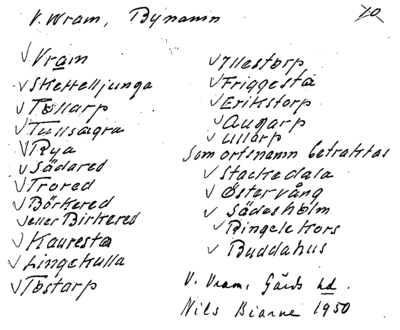 V. Wram, Bynamn
10
Vram
Skettelljunga
Tollarp
Tullsagra
Rya
Södared
Trored
Börkered
eller Birkered
Kauresta
Lingekulla
Tostarp
Illestorp
Friggesta
Erikstorp
Augarp
Lillarp
Som ortsnamn betraktas
Stackedala
Östervång
Södesholm
Bingelekors
Buddahus
V. Vram, Gärds hd.
Nils Bjarne 1950